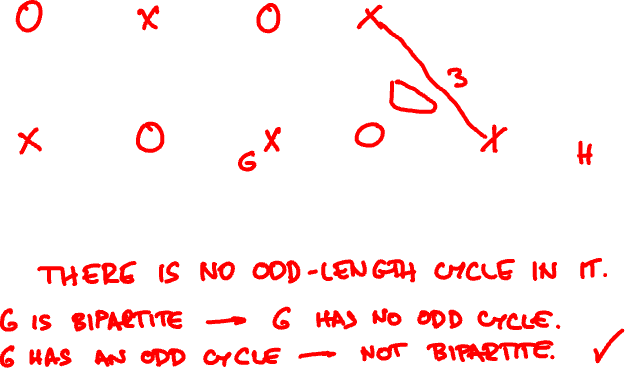 O X O X
3
X O X O X
G H
THERE IS NO ODD-LENGTH CYCLE IN IT.
G IS BIPARTITE → G HAS NO ODD CYCLE.
G HAS AN ODD CYCLE — NOT BIPARTITE. ✓